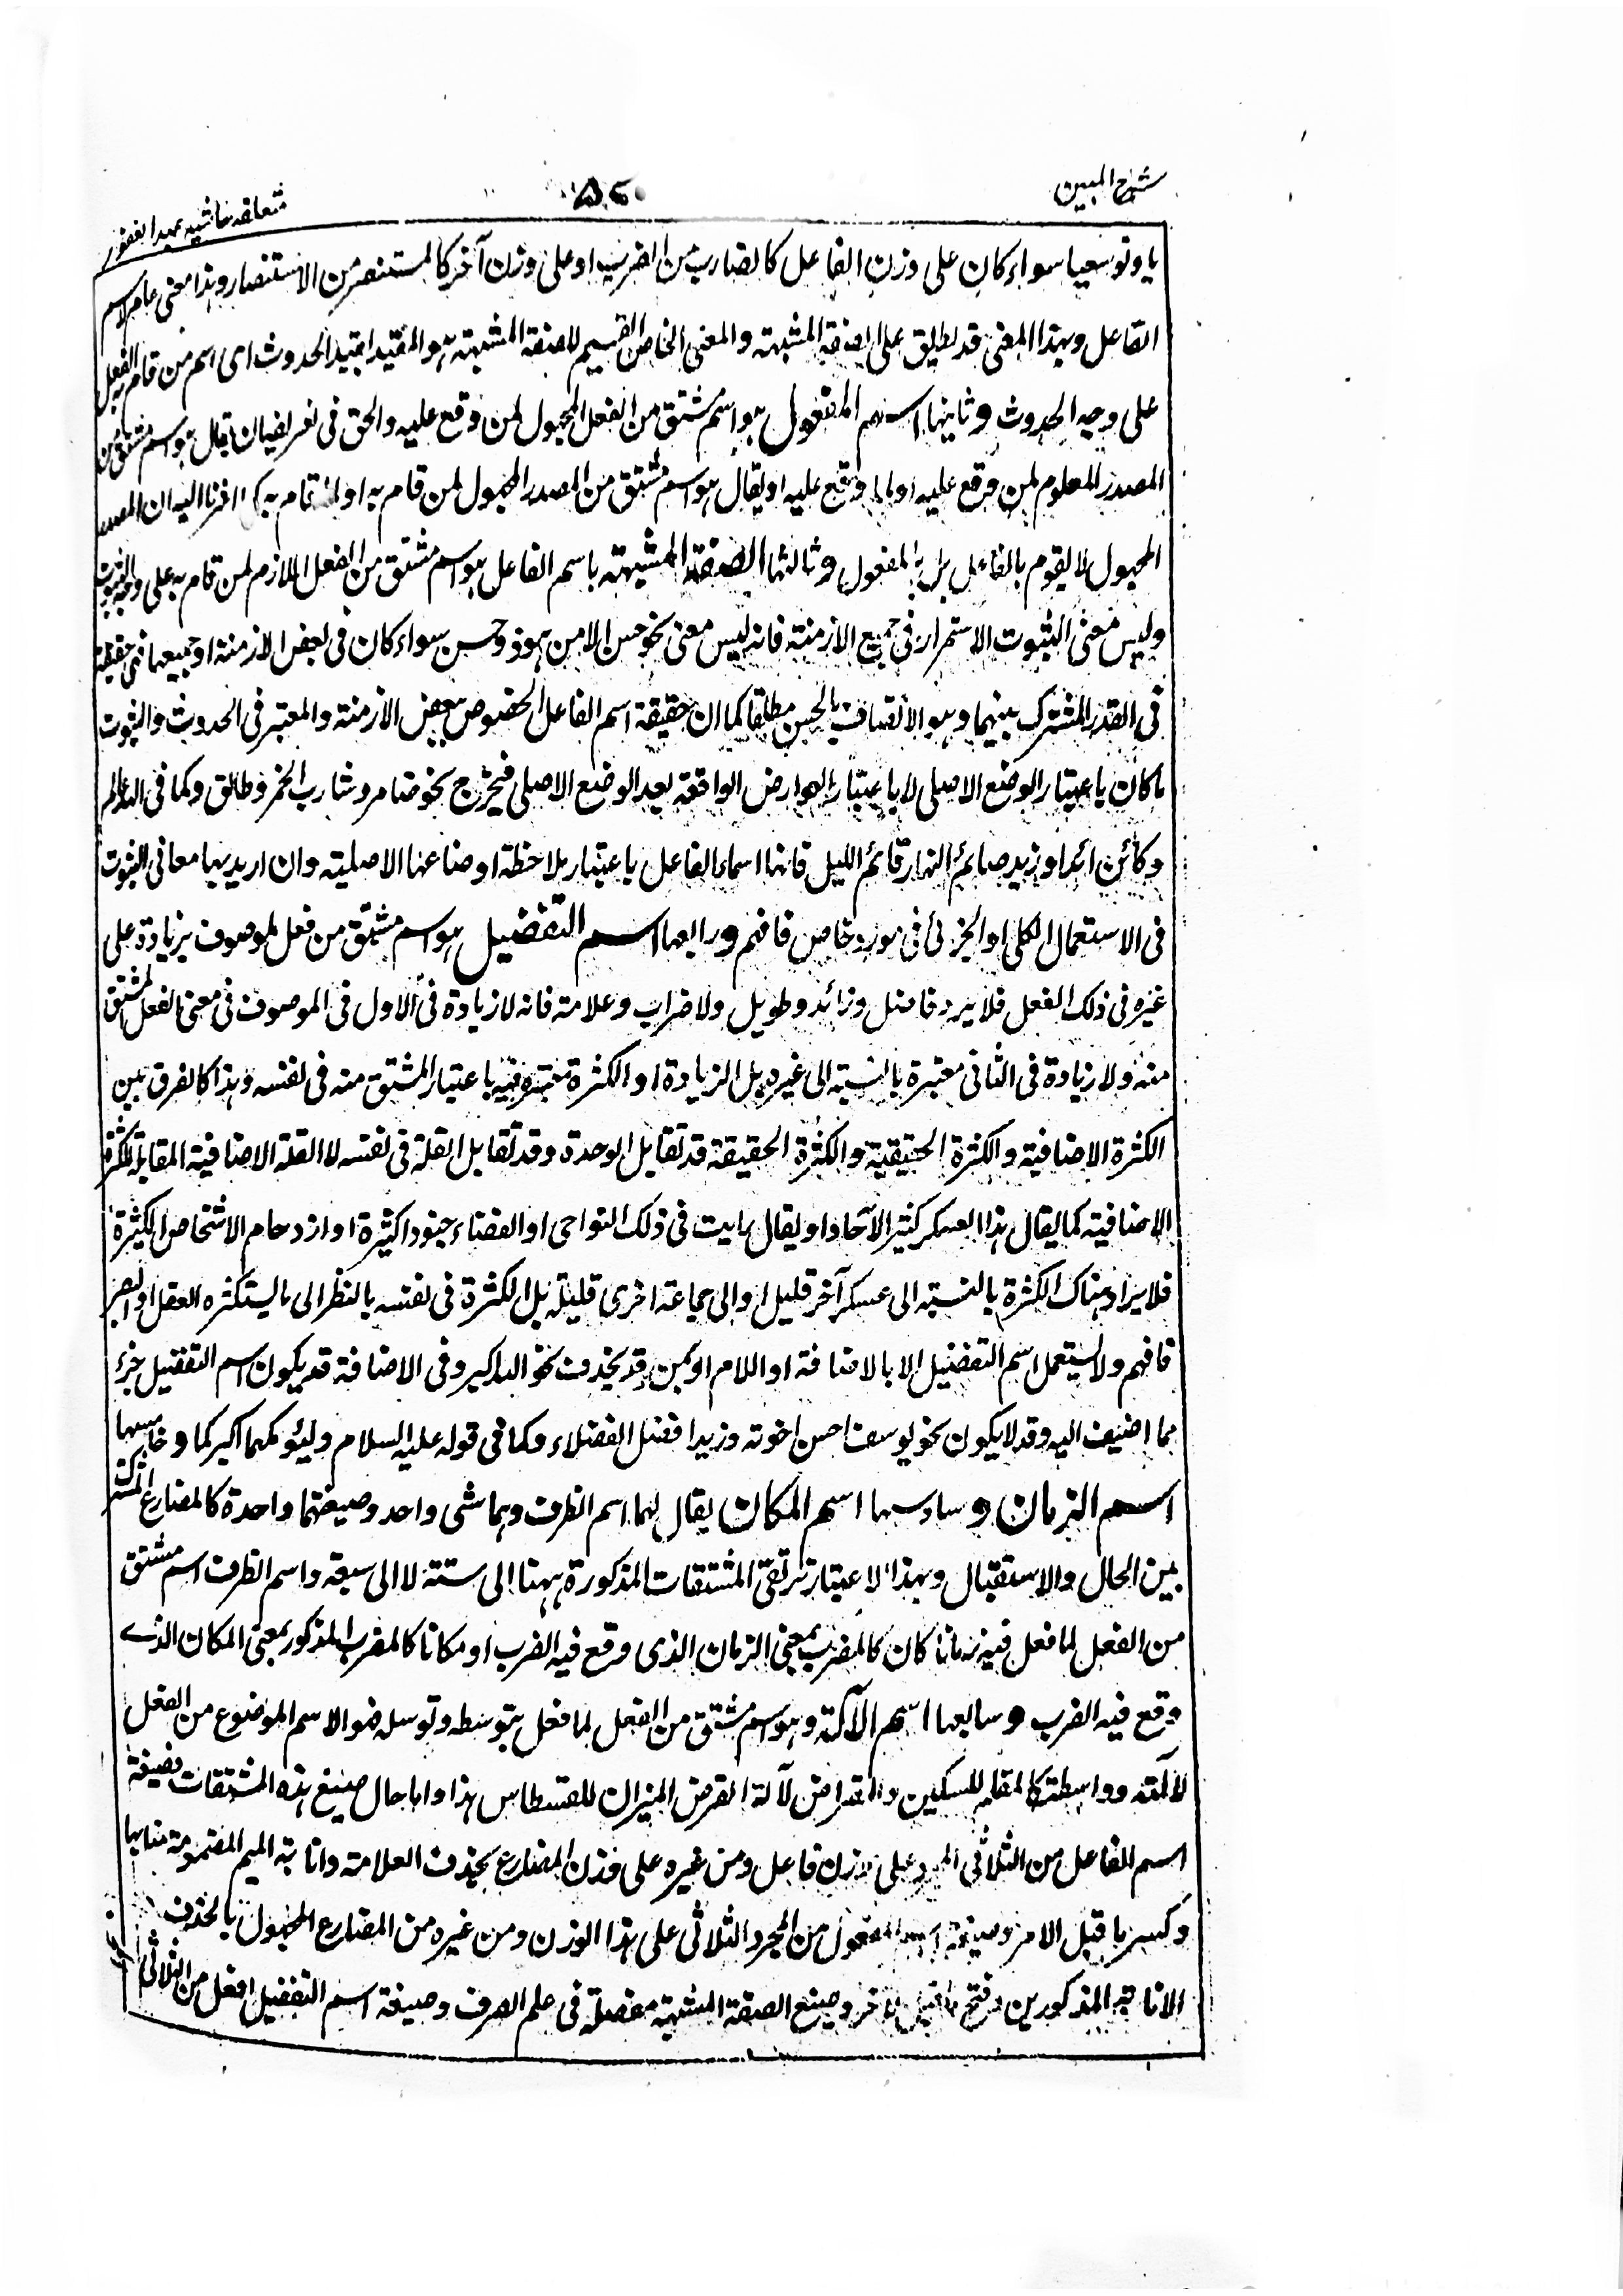 شرح المبين
متعلقه حاشيه عبد الغفور
يا وتوسعيا سواء كان على وزن الفاعل كالضارب من الضرب او على وزن آخر كالمستنصر من الاستنصار وهذا معنى عام لاسم
الفاعل وبهذا المعنى قد يطلق على الصفة المشبهة والمعنى الخاص القسيم للصفة المشبهة هو المقيد بقيد الحدوث اى اسم من قام به الفعل
على وجه الحدوث وثانيها اسم المفعول هو اسم مشتق من الفعل المجهول لمن وقع عليه والحق فى تعريفهما ان يقال هو اسم مشتق من
المصدر المعلوم لمن وقع عليه او لما وقع عليه او يقال هو اسم مشتق من المصدر المجهول لمن قام به او لما قام به اشرنا اليه ان المصدر
المجهول لا يقوم بالفاعل بل بالمفعول وثالثها الصفة المشبهة باسم الفاعل هو اسم مشتق من الفعل اللازم لمن قام به على وجه الثبوت
وليس معنى الثبوت الاستمرار فى جميع الازمنة فانه ليس معنى نحو حسن الا من هو ذو حسن سواء كان فى بعض الازمنة او جميعها فهى حقيقة
فى القدر المشترك بينهما وهو الاتصاف بالحسن مطلقا كما ان حقيقة اسم الفاعل الخصوص ببعض الازمنة والمعتبر فى الحدوث والثبوت
ما كان باعتبار الوضع الاصلى لا باعتبار العوارض الواقعة بعد الوضع الاصلى فيخرج نحو ضامر وشارب الخمر وطالق وكما فى الله عالم
وكائن ابدا وزيد صائم النهار قائم الليل فانها اسماء الفاعل باعتبار ملاحظة اوضاعها الاصلية وان اريد بها معانى الثبوت
فى الاستعمال الكلى او الجزئى فى مورد خاص فافهم ورابعها اسم التفضيل هو اسم مشتق من فعل لموصوف بزيادة على
غيره فى ذلك الفعل فلا يرد فاضل وزائد وطويل ولا ضراب وعلامة فانه لا زيادة فى الاول فى الموصوف فى معنى الفعل المشتق
منه ولا زيادة فى الثانى معتبرة بالنسبة الى غيره بل الزيادة او الكثرة معتبرة فيه باعتبار المشتق منه فى نفسه وهذا كالفرق بين
الكثرة الاضافية والكثرة الحقيقية والكثرة الحقيقة قد تقابل الوحدة وقد تقابل القلة فى نفسه لا القلة الاضافية المقابلة للكثرة
الاضافية كما يقال هذا العسكر كثير الآحاد او يقال رايت فى ذلك النواحى او الفضاء جنودا كثيرة او ازدحام الاشخاص الكثيرة
فلا يراد هناك الكثرة بالنسبة الى عسكر آخر قليل او الى جماعة اخرى قليلة بل الكثرة فى نفسه بالنظر الى ما يستكثره العقل او البصر
فافهم ولا يستعمل اسم التفضيل الا بالاضافة او اللام او بمن وقد يحذف نحو الله اكبر وفى الاضافة قد يكون اسم التفضيل جزء
مما اضيف اليه وقد لا يكون نحو يوسف احسن اخوته وزيد افضل الفضلاء وكما فى قوله عليه السلام وليؤمكما اكبركما وخامسها
اسم الزمان وسادسها اسم المكان يقال لهما اسم الظرف وهما شى واحد وصيغتهما واحدة كالمضارع المشترك
بين الحال والاستقبال وبهذا الاعتبار ترتقى المشتقات المذكورة ههنا الى ستة لا الى سبعة واسم الظرف اسم مشتق
من الفعل لما فعل فيه زمانا كان كالمضرب بمعنى الزمان الذى وقع فيه الضرب او مكانا كالمضرب المذكور بمعنى المكان الذى
وقع فيه الضرب وسابعها اسم الآلة وهو اسم مشتق من الفعل لما فعل بتوسطه وتوسله فهو الاسم الموضوع من الفعل
لآلته وواسطته كالمقلم للسكين والمقراض لآلة القرض الميزان للقسطاس هذا واما حال صيغ هذه المشتقات فصيغة
اسم الفاعل من الثلاثى المجرد على وزن فاعل ومن غيره على وزن المضارع بحذف العلامة واناابة الميم المضمومة منابها
وكسر ما قبل الآخر وصيغة اسم المفعول من المجرد الثلاثى على هذا الوزن ومن غيره من المضارع المجهول بالحذف
الانابة المذكورين وفتح ما قبل الآخر وصيغ الصفة المشبهة مفصلة فى علم الصرف وصيغة اسم التفضيل افعل من الثلاثى